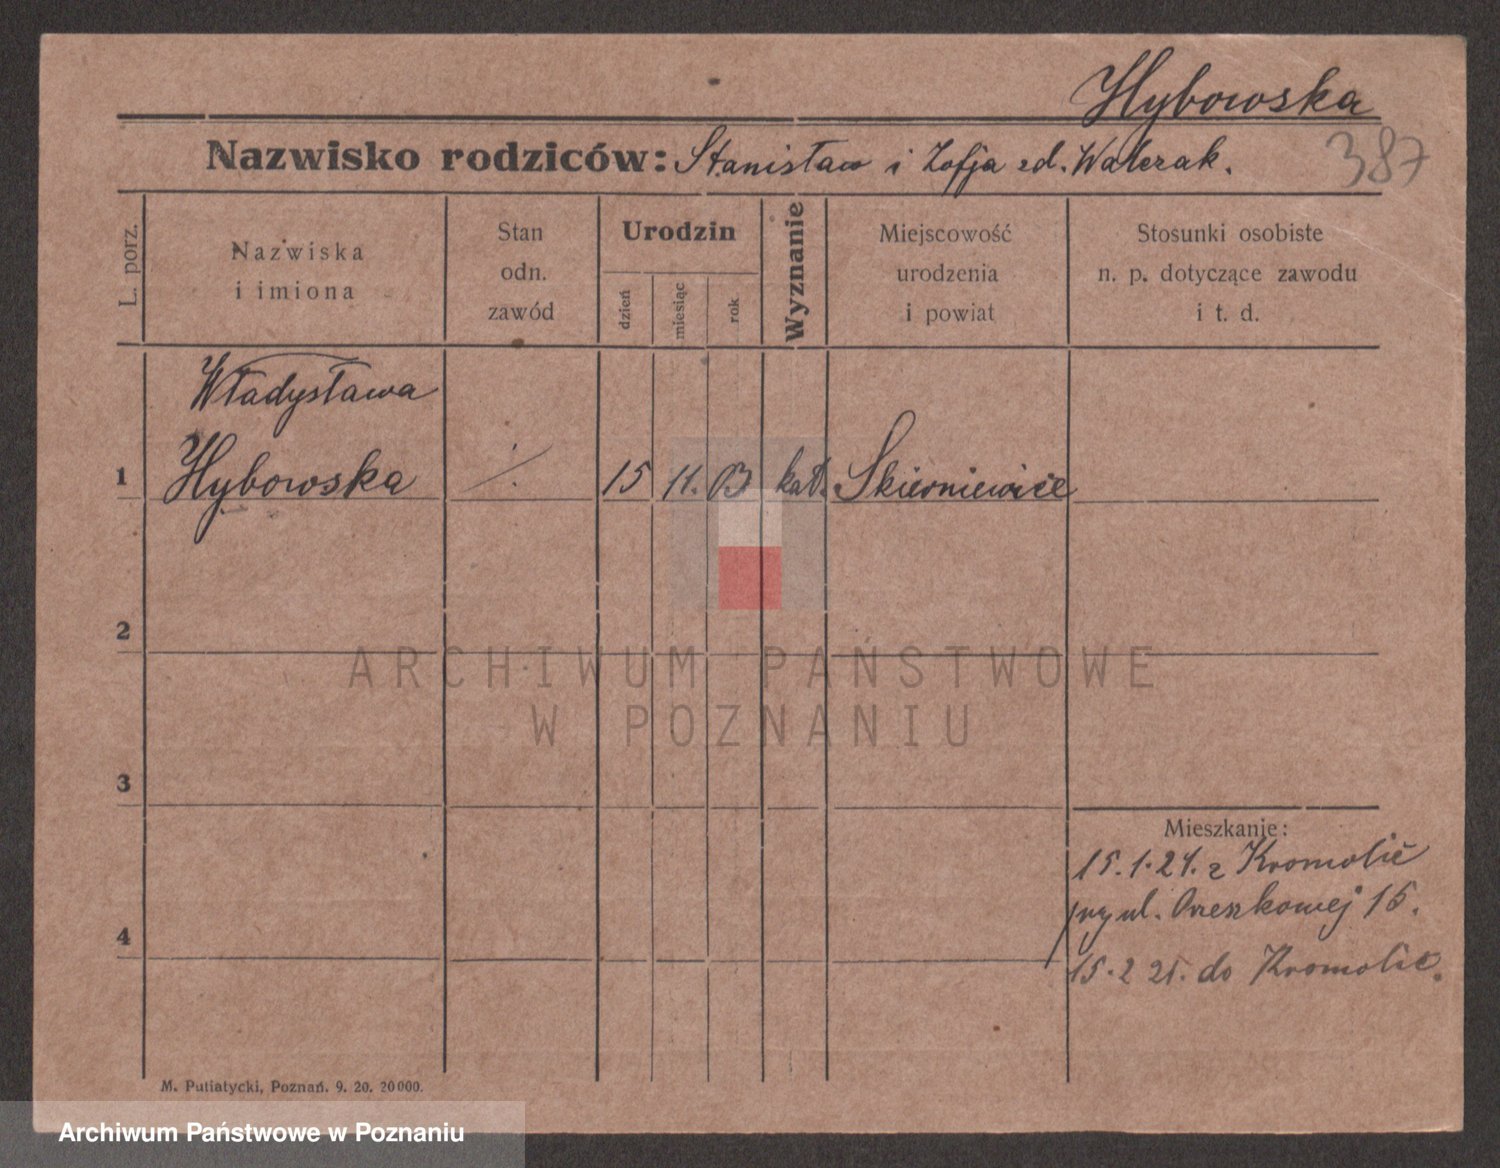 Hybowska
387
Nazwisko rodziców: Stanisław i Zofja zd. Walczak.
L. porz.
Nazwiska
i imiona
Stan
odn.
zawód
Urodzin
dzień
miesiąc
rok
Wyznanie
Miejscowość
urodzenia
i powiat
Stosunki osobiste
n. p. dotyczące zawodu
i t. d.
Władysława
1 Hybowska ./. 15 11. 03 kat. Skierniewice
2
3
Mieszkanie:
15.1.21. z Kromolic
przy ul. Orzeszkowej 15.
4
15.2 21. do Kromolic.
M. Putiatycki, Poznań. 9. 20. 20000.
ARCHIWUM PAŃSTWOWE
W POZNANIU
Archiwum Państwowe w Poznaniu